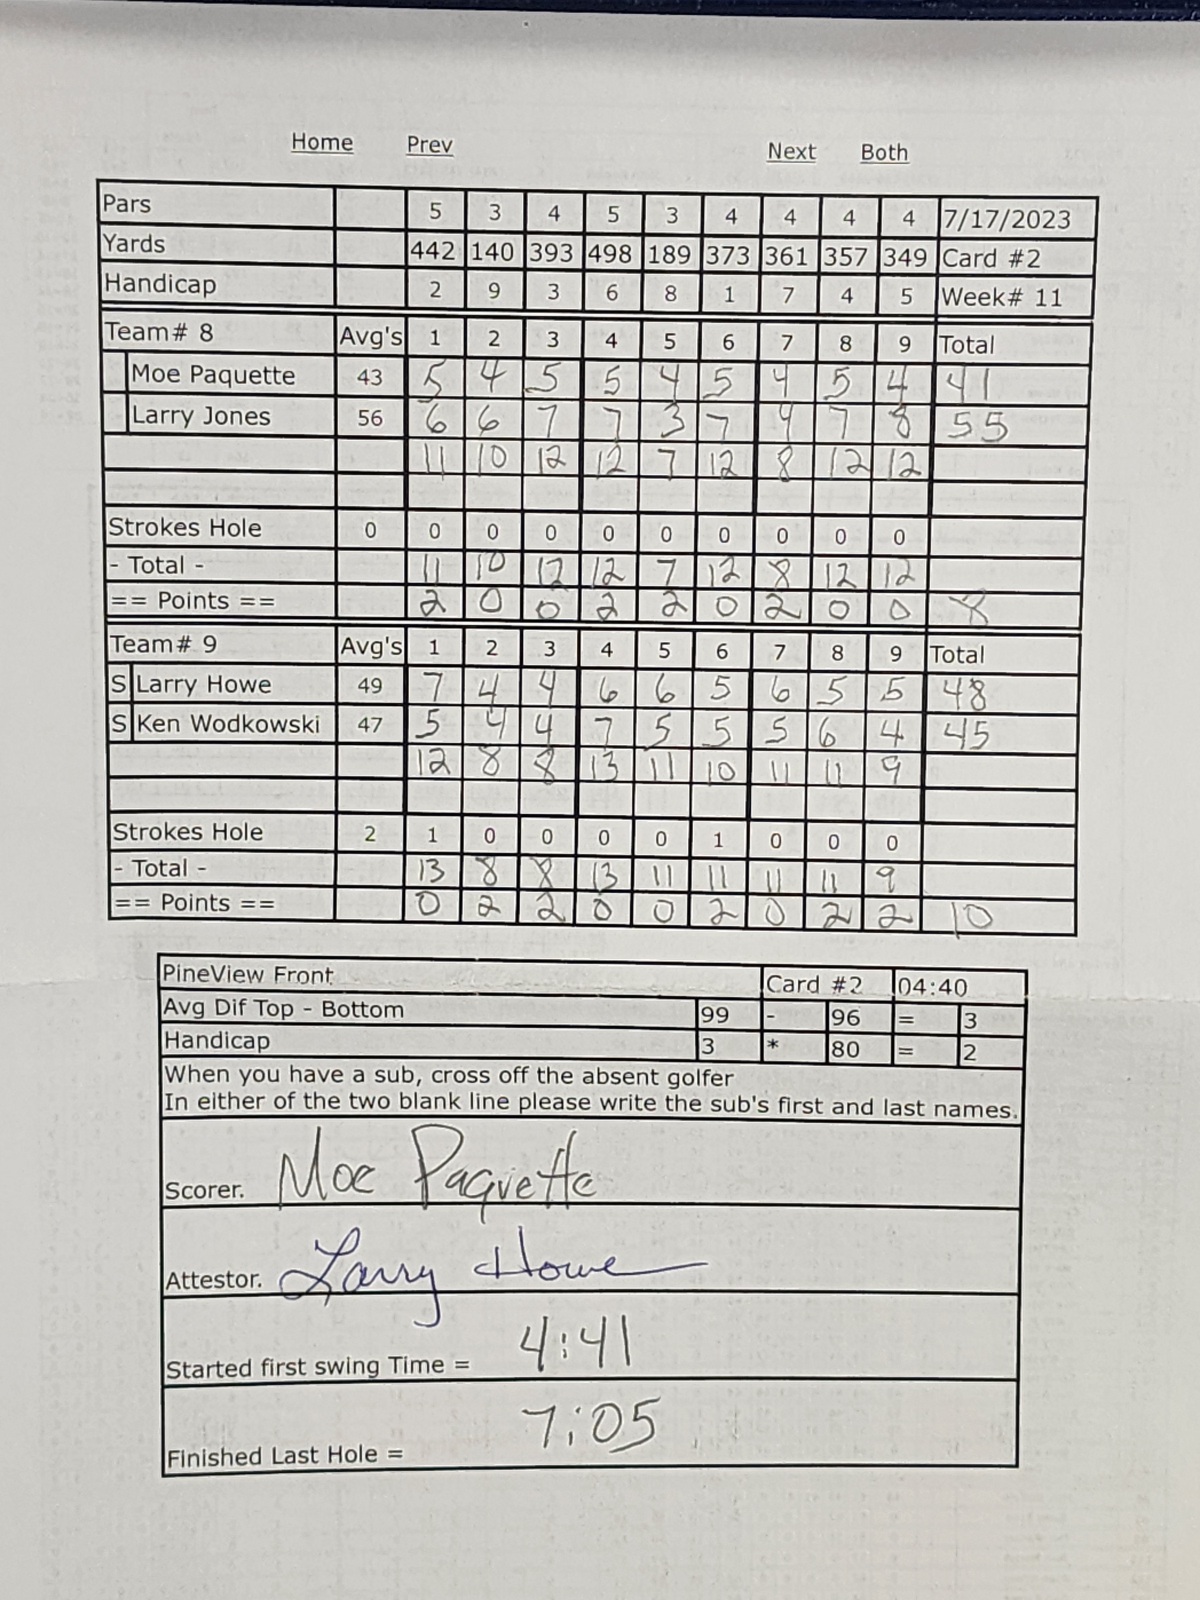 Home Prev Next Both
Pars 5 3 4 5 3 4 4 4 4 7/17/2023
Yards 442 140 393 498 189 373 361 357 349 Card #2
Handicap 2 9 3 6 8 1 7 4 5 Week# 11
Team# 8 Avg's 1 2 3 4 5 6 7 8 9 Total
Moe Paquette 43 5 4 5 5 4 5 4 5 4 41
Larry Jones 56 6 6 7 7 3 7 4 7 8 55
11 10 12 12 7 12 8 12 12
Strokes Hole 0 0 0 0 0 0 0 0 0 0
- Total - 11 10 12 12 7 12 8 12 12
== Points == 2 0 0 2 2 0 2 0 0 8
Team# 9 Avg's 1 2 3 4 5 6 7 8 9 Total
S Larry Howe 49 7 4 4 6 6 5 6 5 5 48
S Ken Wodkowski 47 5 4 4 7 5 5 5 6 4 45
12 8 8 13 11 10 11 11 9
Strokes Hole 2 1 0 0 0 0 1 0 0 0
- Total - 13 8 8 13 11 11 11 11 9
== Points == 0 2 2 0 0 2 0 2 2 10
PineView Front Card #2 04:40
Avg Dif Top - Bottom 99 - 96 = 3
Handicap 3 * 80 = 2
When you have a sub, cross off the absent golfer
In either of the two blank line please write the sub's first and last names.
Scorer. Moe Paquette
Attestor. Larry Howe
Started first swing Time = 4:41
Finished Last Hole = 7:05